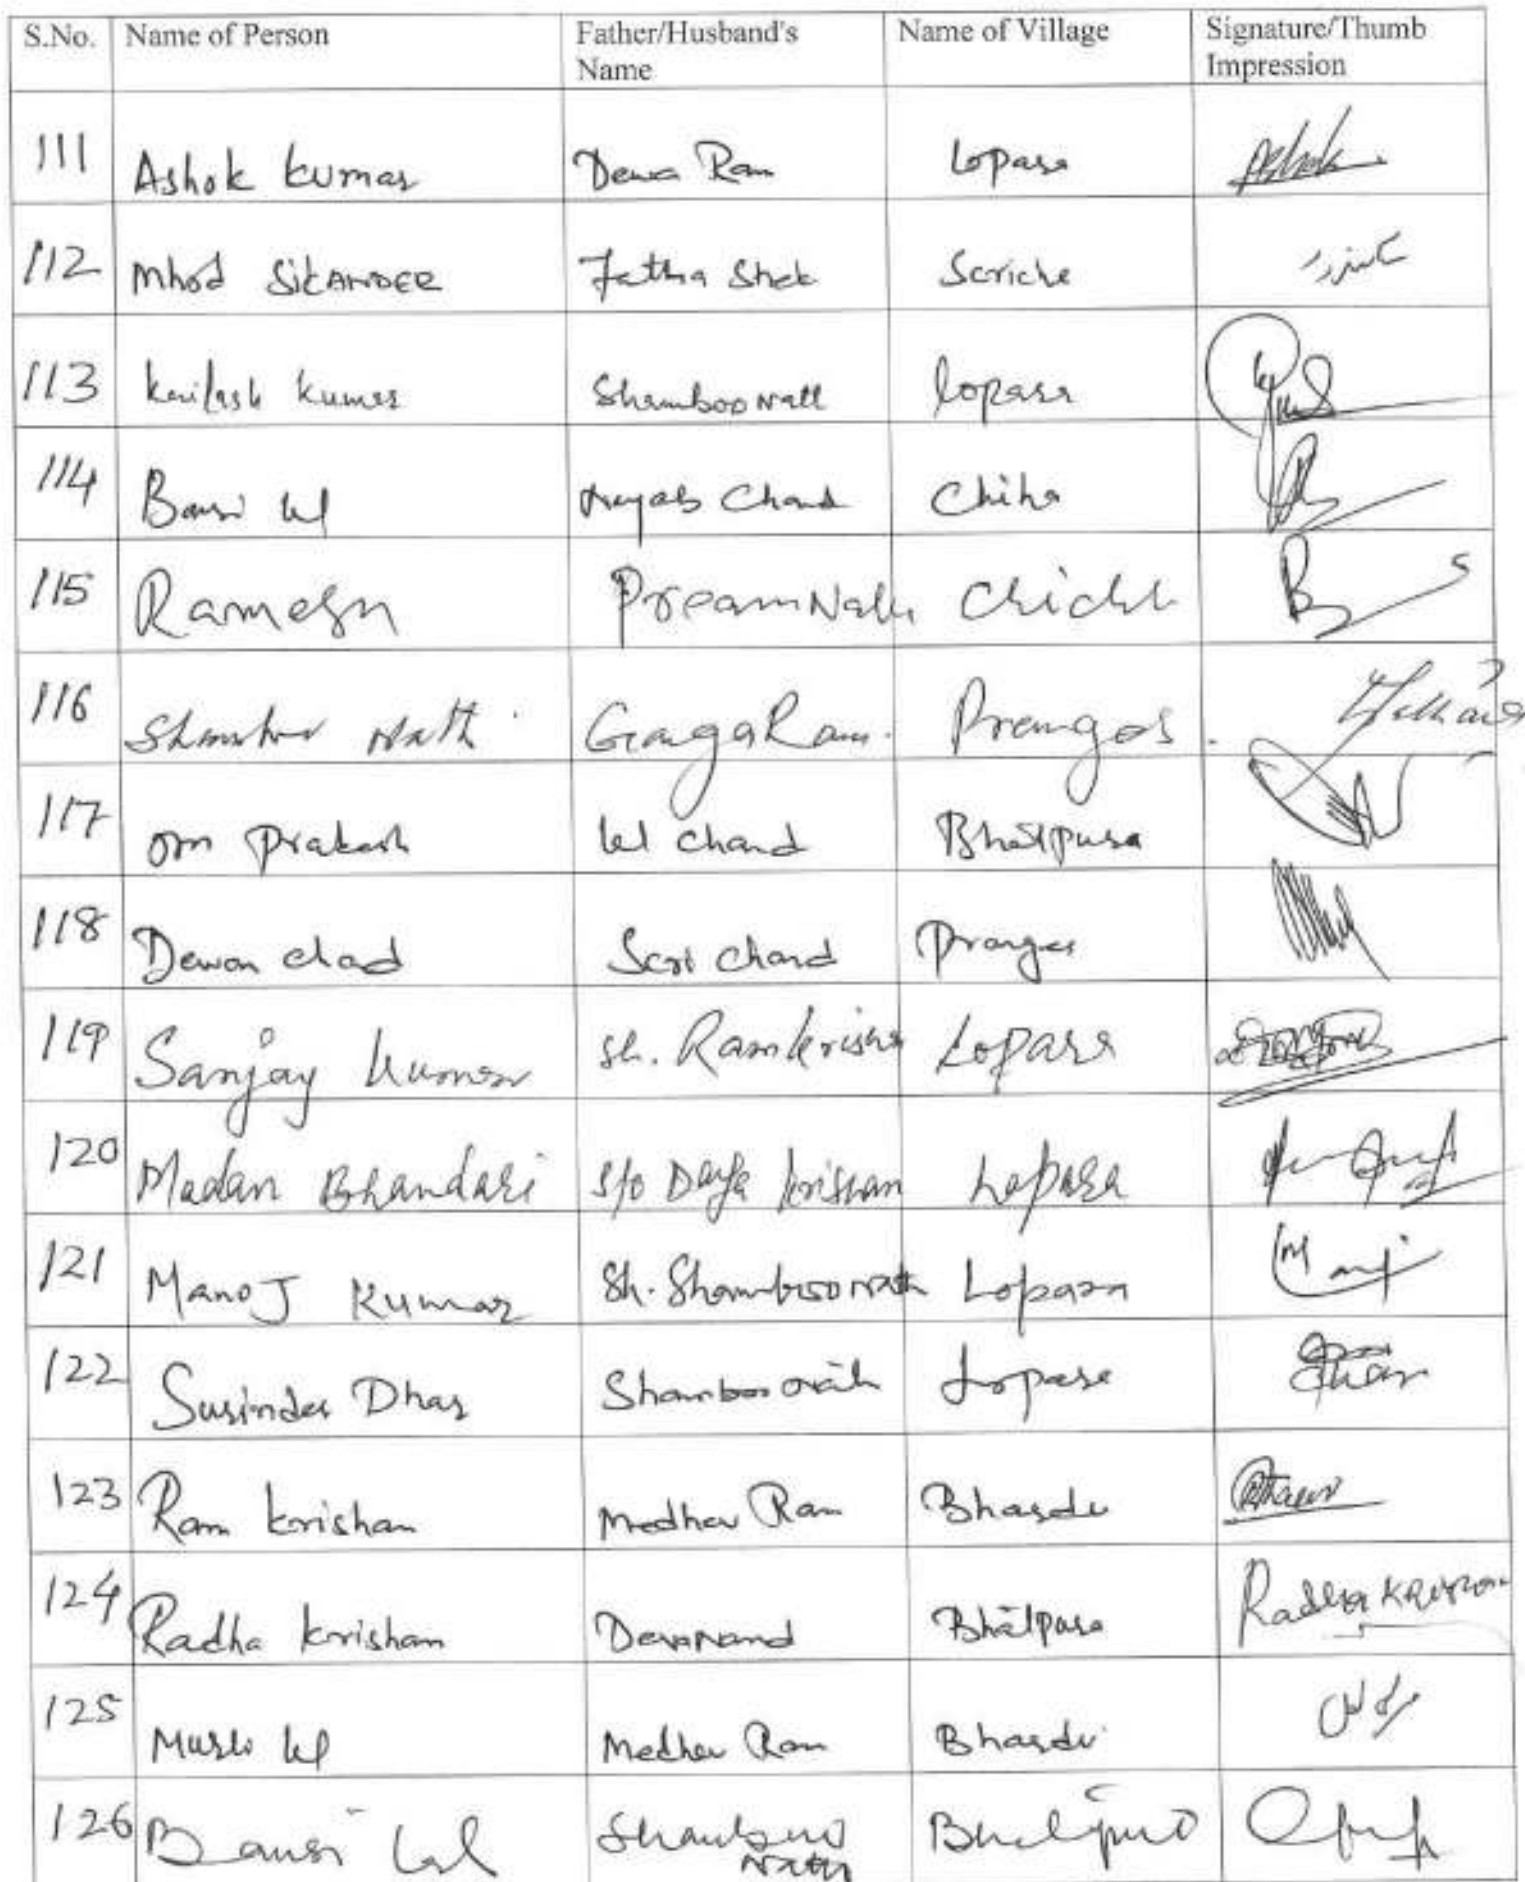 S.No. Name of Person Father/Husband's Name Name of Village Signature/Thumb Impression
111 Ashok kumar Dewa Ram Lopara Ashok
112 Mhod SikANDER Fatha Shek Seriche
113 kailash kumar Shamboo Nath lopara
114 Bansi lal Nayab Chand Chiha
115 Ramesh PreamNath
116 Shambu Nath GangaRam. Prangos.
117 om prakash lal chand Bhatpura
118 Dewan chad Seri chand
119 Sanjay kumar Sh. Ramkrishan Lopara
120 Madan Bhandari S/o Daya krishan Lopara
121 ManoJ Kumar Sh. Shamboo nath Lopara Manoj
122 Surinder Dhar Shamboo nath Lopara Dhar
123 Ram krishan Medhav Ram Bhardu
124 Radha krishan Devanand Bhatpura Radha KRISHAN
125 Murli lal Medhav Ram Bhardu
126 Bansi Lal Shamboo Nath